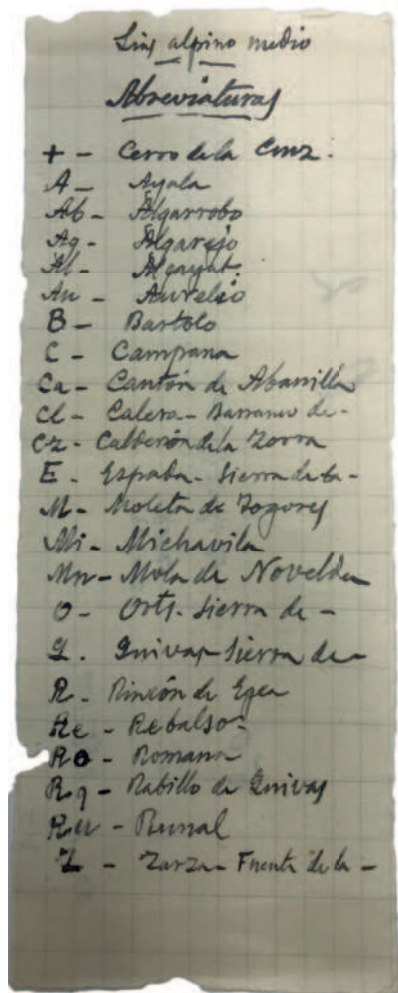 Lias alpino medio
Abreviaturas
+ - Cerro de la Cruz.
A - Ayala
Ab - Algarrobo
Ag - Algarejo
Al - Algayat.
Au - Aurelio
B - Bartolo
C - Campana
Ca - Cantón de Abanilla
Cl - Calera - Barranco de -
Cz - de la Zorra
E - Espada - Sierra de la -
M - Moleta de Togores
Mi - Michavila
Mn - Mola de Novelda
O - Orts. Sierra de -
Q. Quivas Sierra de -
R - Rincón de Egea
Re - Rebalso
Ro - Romana
Rq - Rabillo de Quivas
Ru - Runal
Z - Zarza - Fuente de la -